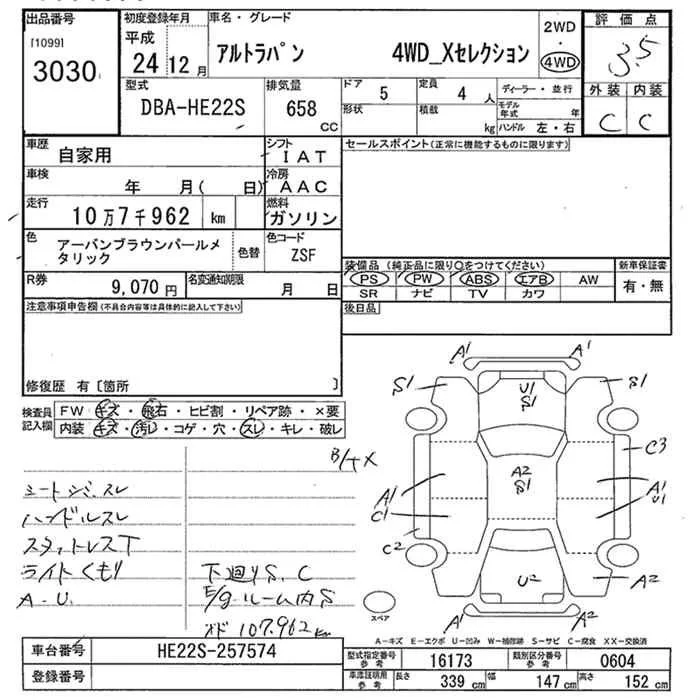 出品番号
[1099]
3030
初度登録年月
平成
24 12 月
車名・グレード
アルトラパン 4WD_Xセレクション
2WD
・
4WD
評価点
3.5
外装 内装
C C
型式
DBA-HE22S
排気量
658
CC
ドア
5
形状
定員
4 人
積載
kg
ディーラー・並行
モデル年式 年
ハンドル 左・右
車歴
自家用
シフト
IAT
セールスポイント(正常に機能するものに限ります)
車検
年 月( 日)
冷房
AAC
走行
10万7千962 km
燃料
ガソリン
色
アーバンブラウンパールメタリック
色替
色コード
ZSF
R券
9,070 円
名変通知期限
月 日
装備品 (純正品に限り○をつけてください)
PS PW ABS エアB AW
SR ナビ TV カワ
新車保証書
有・無
後日品
注意事項申告欄(不具合内容等は具体的に記入して下さい)
修復歴 有〔箇所 〕
検査員記入欄
FW キズ・飛石・ヒビ割・リペア跡・×要
内装 キズ・汚レ・コゲ・穴・スレ・キレ・破レ
シートシミ.スレ
ハンドルスレ
スタットレスT
ライトくもり
A-U.
下廻りS.C
E/gルーム内S
オド 107.962km
A1
A1
S1
S1
U1
S1
C3
A2
S1
A1
C1
A1
U1
C2
U2
A2
A1
A2
スペア
A-キズ E-エクボ U-凹み W-補修跡 S-サビ C-腐食 XX-交換済
車台番号
HE22S-257574
登録番号
型式指定番号
参考
16173
類別区分番号
参考
0604
車庫証明用
参考
長さ
339 cm
幅
147 cm
高さ
152 cm